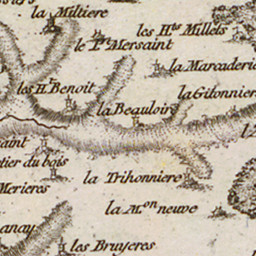 la Miltiere
les H.ts Millets
le P.t Mersaint
la Marcaderie
les H. Benoit
la Gitonniere
la Beauloire
saint
tier du bois
la Trihonniere
Merieres
la M.on neuve
anay
les Bruyeres